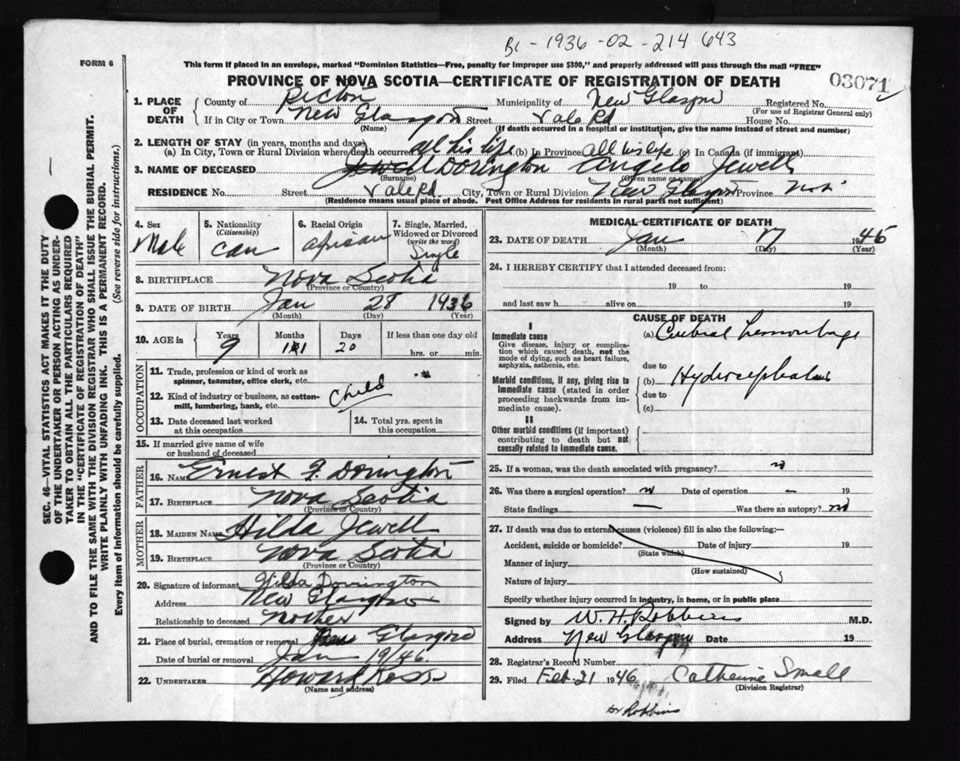 BC - 1936 - 02 - 214 643
FORM 6
This form if placed in an envelope, marked "Dominion Statistics—Free, penalty for improper use $300," and properly addressed will pass through the mail "FREE"
PROVINCE OF NOVA SCOTIA—CERTIFICATE OF REGISTRATION OF DEATH
03071
1. PLACE OF DEATH
County of Pictou Municipality of New Glasgow Registered No.
(For use of Registrar General only)
If in City or Town New Glasgow Street Vale Rd House No.
(Name) (If death occurred in a hospital or institution, give the name instead of street and number)
2. LENGTH OF STAY (in years, months and days)
(a) In City, Town or Rural Division where death occurred all his life (b) In Province all his life (c) In Canada (if immigrant)
3. NAME OF DECEASED Dorington Jewell
(Surname) (Given name or names)
RESIDENCE No. Street Vale Rd City, Town or Rural Division New Glasgow Province N.S.
(Residence means usual place of abode. Post Office Address for residents in rural parts not sufficient)
4. Sex Male
5. Nationality (Citizenship) Can
6. Racial Origin African
7. Single, Married, Widowed or Divorced (write the word) Single
8. BIRTHPLACE Nova Scotia
(Province or Country)
9. DATE OF BIRTH Jan 28 1936
(Month) (Day) (Year)
10. AGE in Years 9 Months 11 Days 20 If less than one day old
hrs. or min.
OCCUPATION
11. Trade, profession or kind of work as spinner, teamster, office clerk, etc.
12. Kind of industry or business, as cotton-mill, lumbering, bank, etc. Child
13. Date deceased last worked at this occupation
14. Total yrs. spent in this occupation
15. If married give name of wife or husband of deceased
FATHER
16. NAME Ernest F. Dorington
17. BIRTHPLACE Nova Scotia
(Province or Country)
MOTHER
18. MAIDEN NAME Hilda Jewell
19. BIRTHPLACE Nova Scotia
(Province or Country)
20. Signature of informant Hilda Dorington
Address New Glasgow
Relationship to deceased Mother
21. Place of burial, cremation or removal New Glasgow
Date of burial or removal Jan 19/46.
22. UNDERTAKER Howard Ross
(Name and address)
MEDICAL CERTIFICATE OF DEATH
23. DATE OF DEATH Jan 17 1946
(Month) (Day) (Year)
24. I HEREBY CERTIFY that I attended deceased from:
19 to 19
and last saw h alive on 19
CAUSE OF DEATH
I
Immediate cause
Give disease, injury or complication which caused death, not the mode of dying, such as heart failure, asphyxia, asthenia, etc.
(a) Cerebral hemorrhage
due to
Morbid conditions, if any, giving rise to immediate cause (stated in order proceeding backwards from immediate cause).
(b) Hydrocephalus
due to
(c)
II
Other morbid conditions (if important) contributing to death but not causally related to immediate cause.
25. If a woman, was the death associated with pregnancy? no
26. Was there a surgical operation? no Date of operation — 19
State findings — Was there an autopsy? no
27. If death was due to external causes (violence) fill in also the following:—
Accident, suicide or homicide? Date of injury 19
(State which)
Manner of injury
(How sustained)
Nature of injury
Specify whether injury occurred in industry, in home, or in public place
Signed by W. H. Robbins M.D.
Address New Glasgow Date 19
28. Registrar's Record Number
29. Filed Feb. 21 1946 Catherine Small
(Division Registrar)
Dr Robbins
SEC. 46—VITAL STATISTICS ACT MAKES IT THE DUTY
OF THE UNDERTAKER OR PERSON ACTING AS UNDER-
TAKER TO OBTAIN ALL THE PARTICULARS REQUIRED
IN THE "CERTIFICATE OF REGISTRATION OF DEATH"
AND TO FILE THE SAME WITH THE DIVISION REGISTRAR WHO SHALL ISSUE THE BURIAL PERMIT.
WRITE PLAINLY WITH UNFADING INK. THIS IS A PERMANENT RECORD.
Every item of information should be carefully supplied. (See reverse side for instructions.)